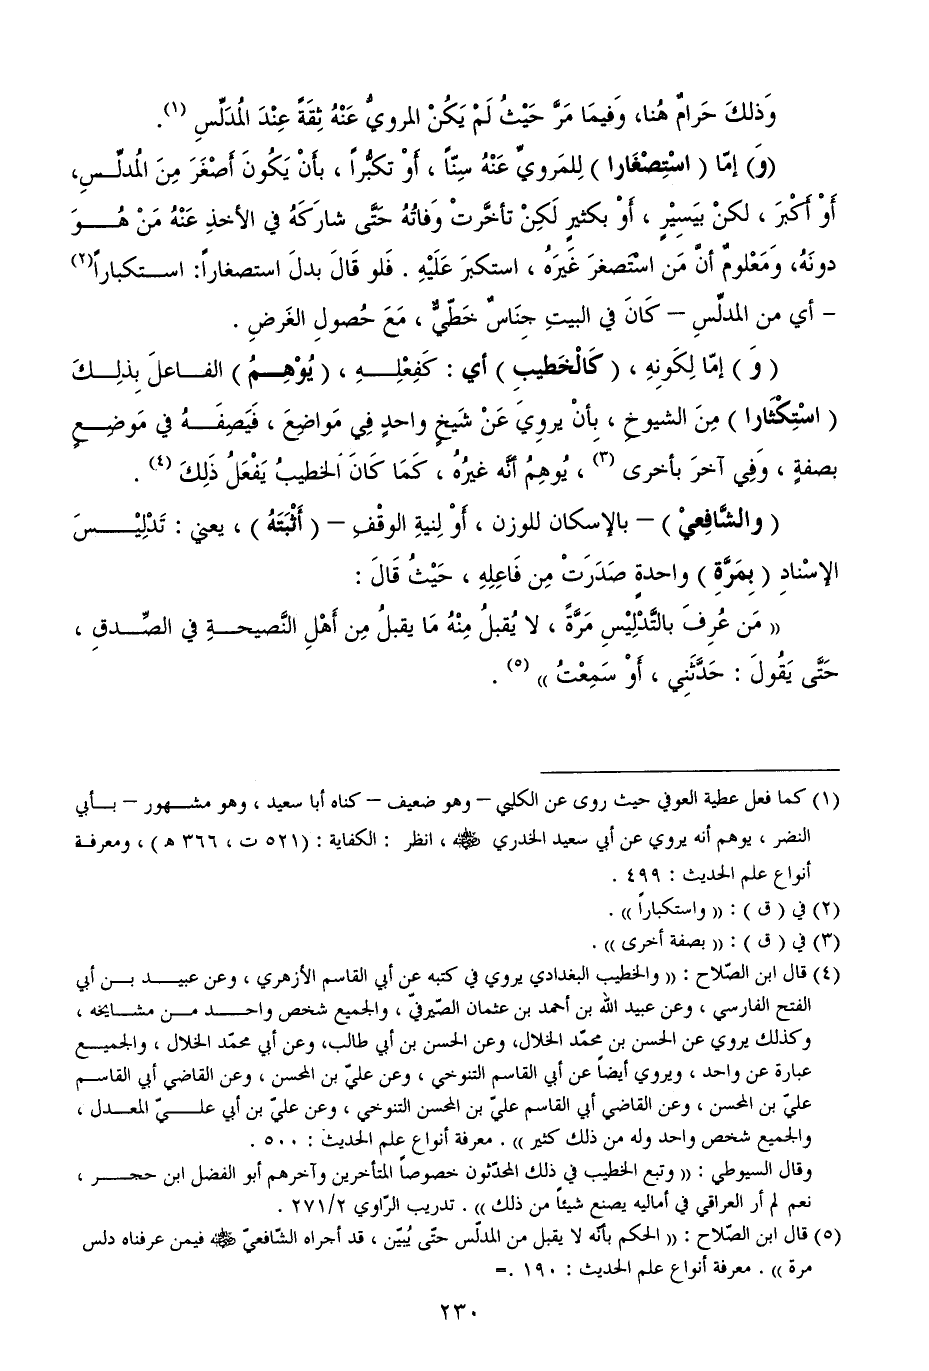 وَذلكَ حَرامٌ هُنا، وَفيمَا مَرَّ حَيْثُ لَمْ يَكُنْ المرويُّ عَنْهُ ثِقَةً عِنْدَ المُدَلِّسِ (١).
(وَ) إمّا ( اسْتِصْغَارا ) لِلمَرويِّ عَنْهُ سِنّاً ، أَوْ تكبُّراً ، بأَنْ يَكُونَ أَصْغَرَ مِنَ المُدلِّـسِ،
أَوْ أَكْبَرَ ، لكنْ بيَسِيْرٍ ، أَوْ بكثيرٍ لَكِنْ تأخَّرتْ وَفاتُهُ حَتَّى شارَكَهُ في الأخذِ عَنْهُ مَنْ هُــوَ
دونَهُ، وَمَعْلومٌ أنَّ مَن اسْتَصغرَ غَيرَهُ ، استكبرَ عَلَيْهِ . فلو قالَ بدلَ استصغاراً: اســتكباراً(٢)
– أي من المدلّسِ – كَانَ في البيتِ جِنَاسٌ خَطّيٌّ ، مَعَ حُصولِ الغَرضِ .
( وَ ) إمّا لِكَونِهِ ، ( كَالْخَطيبِ ) أي : كَفِعْلِــهِ ، ( يُوْهِــمُ ) الفــاعلَ بِذلِــكَ
( اسْتِكْثَارا ) مِنَ الشيوخِ ، بأنْ يرويَ عَنْ شَيخٍ واحدٍ فِي مَواضِعَ ، فَيَصِفَــهُ في مَوضــعٍ
بصفةٍ ، وَفِي آخرَ بأخرى (٣) ، يُوهِمُ أنَّه غيرُهُ ، كَمَا كَانَ الخطيبُ يَفْعَلُ ذَلِكَ (٤) .
( والشَّافِعيْ ) – بالإسكان للوزن ، أَوْ لِنيةِ الوقْفِ – ( أَثْبَتَهُ ) ، يعني : تَدْلِيْــسَ
الإسْنادِ ( بِمَرَّةِ ) واحدةٍ صَدَرَتْ مِن فَاعِلِهِ ، حَيْثُ قَالَ :
« مَن عُرِفَ بالتَّدْلِيْسِ مَرَّةً ، لا يُقبلُ مِنْهُ مَا يقبلُ مِن أَهْلِ النَّصيحــةِ في الصِّــدقِ ،
حَتَّى يَقُولَ : حَدَّثَنِي ، أَوْ سَمِعْتُ » (٥) .
(١) كما فعل عطية العوفي حيث روى عن الكلبي – وهو ضعيف – كناه أبا سعيد ، وهو مشــهور – بــأبي
النضر ، يوهم أنه يروي عن أبي سعيد الخدري ﵁ ، انظر : الكفاية : (٥٢١ ت ، ٣٦٦ هـ) ، ومعرفــة
أنواع علم الحديث : ٤٩٩ .
(٢) في ( ق ) : « واستكباراً » .
(٣) في ( ق ) : « بصفة أخرى » .
(٤) قال ابن الصّلاح : « والخطيب البغدادي يروي في كتبه عن أبي القاسم الأزهري ، وعن عبيــد بــن أبي
الفتح الفارسي ، وعن عبيد الله بن أحمد بن عثمان الصّيرفيّ ، والجميع شخص واحــد مــن مشــايخه ،
وكذلك يروي عن الحسن بن محمّد الخلال، وعن الحسن بن أبي طالب، وعن أبي محمّد الخلال ، والجميــع
عبارة عن واحد ، ويروي أيضاً عن أبي القاسم التنوخي ، وعن عليّ بن المحسن ، وعن القاضي أبي القاســم
عليّ بن المحسن ، وعن القاضي أبي القاسم عليّ بن المحسن التنوخي ، وعن عليّ بن أبي علــيّ المعــدل ،
والجميع شخص واحد وله من ذلك كثير » . معرفة أنواع علم الحديث : ٥٠٠ .
وقال السيوطي : « وتبع الخطيب في ذلك المحدّثون خصوصاً المتأخرين وآخرهم أبو الفضل ابن حجــر ،
نعم لم أر العراقي في أماليه يصنع شيئاً من ذلك » . تدريب الرّاوي ٢٧١/٢ .
(٥) قال ابن الصّلاح : « الحكم بأنّه لا يقبل من المدلّس حتّى يُبيّن ، قد أجراه الشّافعيّ ﵁ فيمن عرفناه دلس
مرة » . معرفة أنواع علم الحديث : ١٩٠ .=
٢٣٠